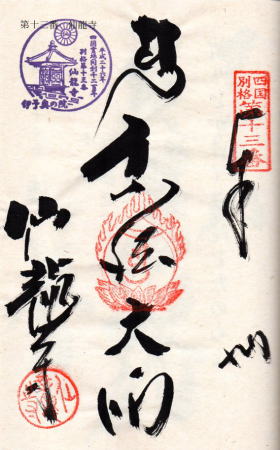 第十三番 仙龍寺
四国
別格
第十三番
奉納
弘法大師
仙龍寺
平成二十六年
四国霊場開創千二百年
別格第十三番
仙龍寺
伊予奥の院